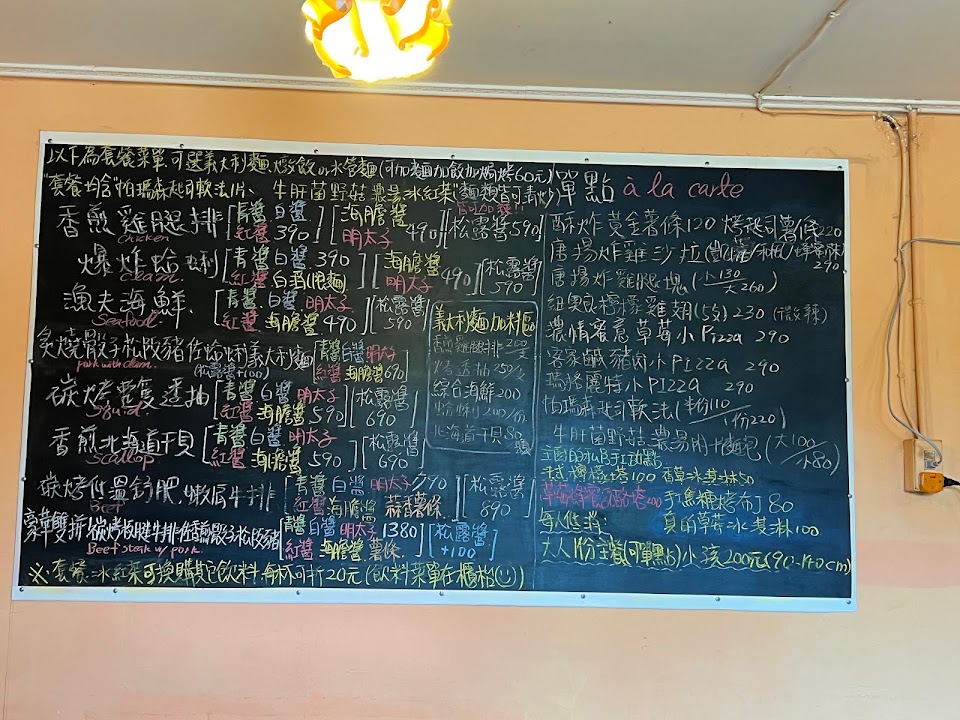 以下為套餐菜單可選義大利麵.燉飯or水管麵(可加麵加飯加焗烤60元)
"套餐均含"帕瑞森起司軟法1片、牛肝菌野菇濃湯.冰紅茶"麵類皆可清炒
香煎雞腿排[青醬 白醬 紅醬 390][海膽醬 明太子 490][松露醬590]
chicken
爆炸蛤蜊[青醬 白醬 390 紅醬 白酒(限麵)][海膽醬 明太子 490][松露醬 590]
clam
漁夫海鮮[青醬 白醬 明太子 紅醬 海膽醬 490][松露醬 590]
Seafood
炙燒骰子松阪豬佐蛤蜊義大利麵[青醬白醬明太子 紅醬 海膽醬 690]
pork with clam (松露醬+100)
碳烤整隻透抽[青醬 白醬 明太子 紅醬 海膽醬 590][松露醬 690]
Squid
香煎北海道干貝[青醬 白醬 明太子 紅醬 海膽醬 590][松露醬 690]
Scallop
碳烤低溫舒肥.嫩肩牛排[青醬 白醬 明太子 790 紅醬 海膽醬 蒜香薯條][松露醬 890]
Beef
豪華雙拼 碳烤板腱牛排佐香煎骰子松阪豬[青醬 白醬 明太子 1380 紅醬 海膽醬 薯條][松露醬 +100]
Beef steak w/ pork
※套餐.冰紅茶可換購其它飲料.每杯可折20元(飲料菜單在櫃檯☺)
義大利麵加料區
香煎雞腿排200/支
烤透抽250/隻
綜合海鮮200
蛤蜊200/份
北海道干貝80/顆
單點 à la carte
酥炸黃金薯條120 烤起司薯條220
唐揚炸雞沙拉(凱薩/和風/蜂蜜芥末) 290
唐揚炸雞腿塊(小130 大260)
紐奧良檸檬雞翅(5台)230 (微辣)
濃情蜜意草莓小Pizza 290
客家鹹豬肉小PIZZA 290
瑪格麗特小PIZZA 290
帕瑞森起司軟法(半份110 1份220)
牛肝菌野菇濃湯附麵包(大100 小80)
手工甜點
法式檸檬塔100 香草冰淇淋50
手焦糖烤布丁80
每人低消: 真的草莓冰淇淋100
大人1份主餐(可單點) 小孩200元(90-140cm)